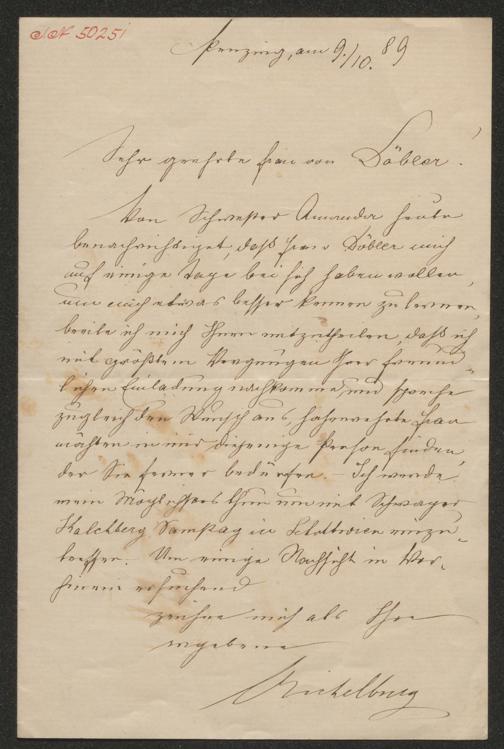 I.N. 50251
Penzing, am 9./10. 89
Sehr geehrte Frau von Döbler!
Von Schwester Amanda heute
benachrichtiget, daß Frau Döbler mich
auf einige Tage bei sich haben wollen,
um mich etwas besser kennen zu lernen,
beeile ich mich Ihnen mitzutheilen, daß ich
mit größtem Vergnügen Ihrer freund-
lichen Einladung nachkomme, und spreche
zugleich den Wunsch aus, hochverehrte Frau
möchten in mir diejenige Person finden,
der Sie ferner bedürfen. – Ich werde
mein Möglichstes thun um mit Schwager
Kalchberg Samstag in einzu-
treffen. Um einige Nachsicht im Vor-
hinein ersuchend
zeichne mich als Ihre
ergebene
Michelburg